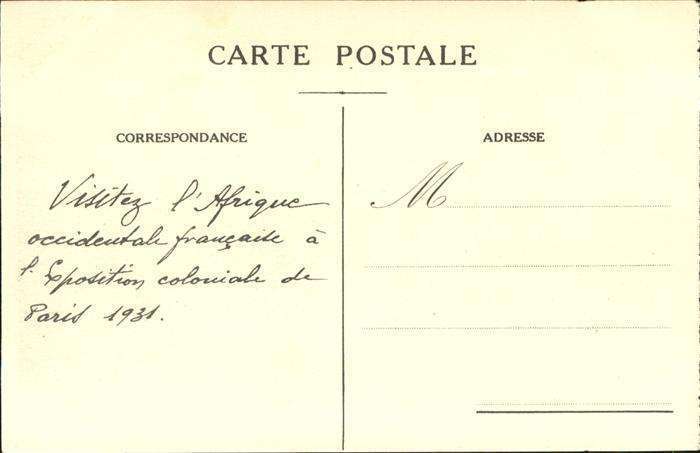 CARTE POSTALE
CORRESPONDANCE
Visitez l'Afrique
occidentale française à
l'Exposition coloniale de
Paris 1931.
ADRESSE
M